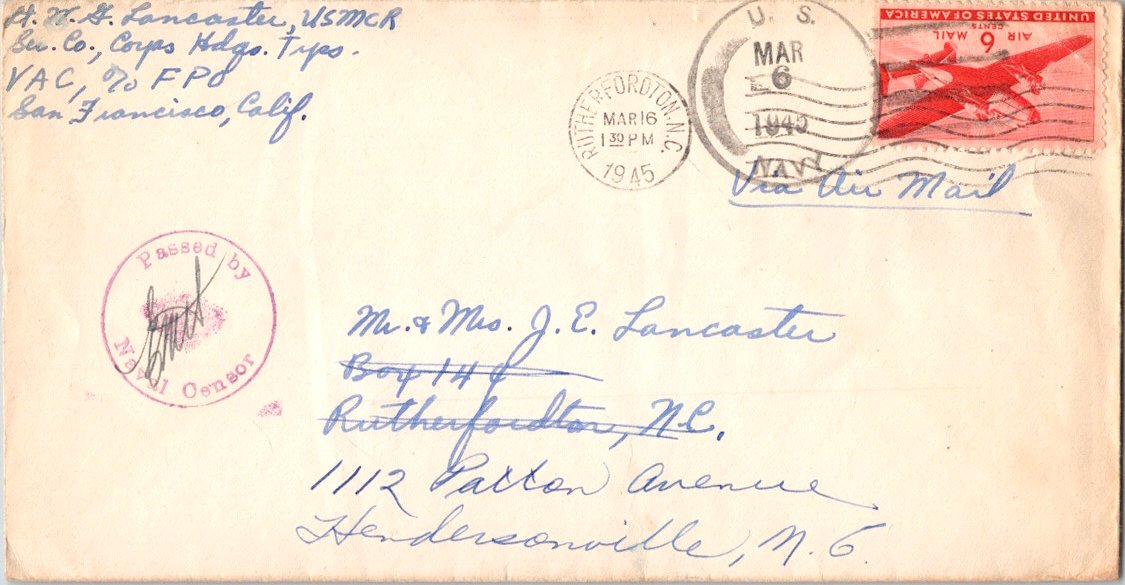 H. W. G. Lancaster, USMCR
Ser. Co., Corps Hdqs. Trps.
VAC, c/o FPO
San Francisco, Calif.
RUTHERFORDTON, N.C.
MAR 16
1 30 PM
1945
U. S.
MAR
6
1945
NAVY
UNITED STATES OF AMERICA
6 CENTS
AIR MAIL
Via Air Mail
Passed by
Naval Censor
Mr. & Mrs. J. E. Lancaster
Box 144
Rutherfordton, N.C.
1112 Patton Avenue
Hendersonville, N. C.